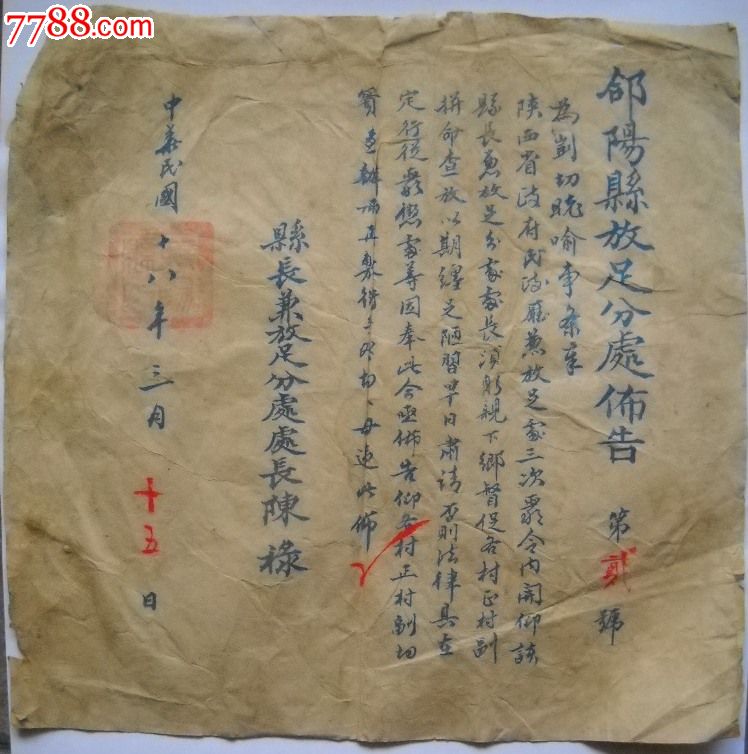 7788.com
郃陽縣放足分處佈告 第貳號
為剴切曉喻事案奉
陝西省政府民政廳兼放足處三次嚴令內開仰該
縣長兼放足分處處長須躬親下鄉督促各村正村副
拼命查放以期纏足陋習早日肅清否則法律具在
定行從嚴懲處等因奉此合亟佈告仰各村正村副切
實查辦而再敷衍 切切毋違此佈
縣長兼放足分處處長陳祿
中華民國十八年三月十五日